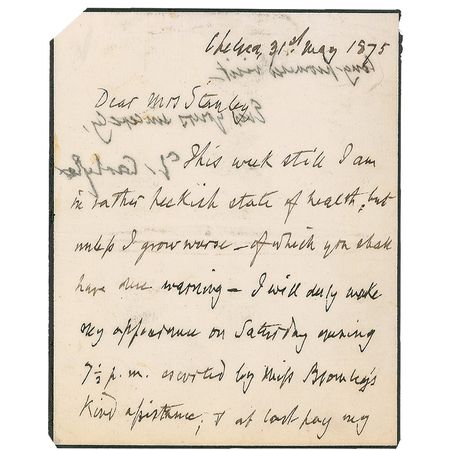 Chelsea, 31st May 1875
Dear Mrs Stanley
This week still I am
in rather state of health; but
unless I grow worse – of which you shall
have due warning – I will duly make
my appearance on Saturday evening
7½ p.m. escorted by Miss Bromley's
kind assistance; & at last pay my
long promised visit.
Ever yours sincerely,
T. Carlyle